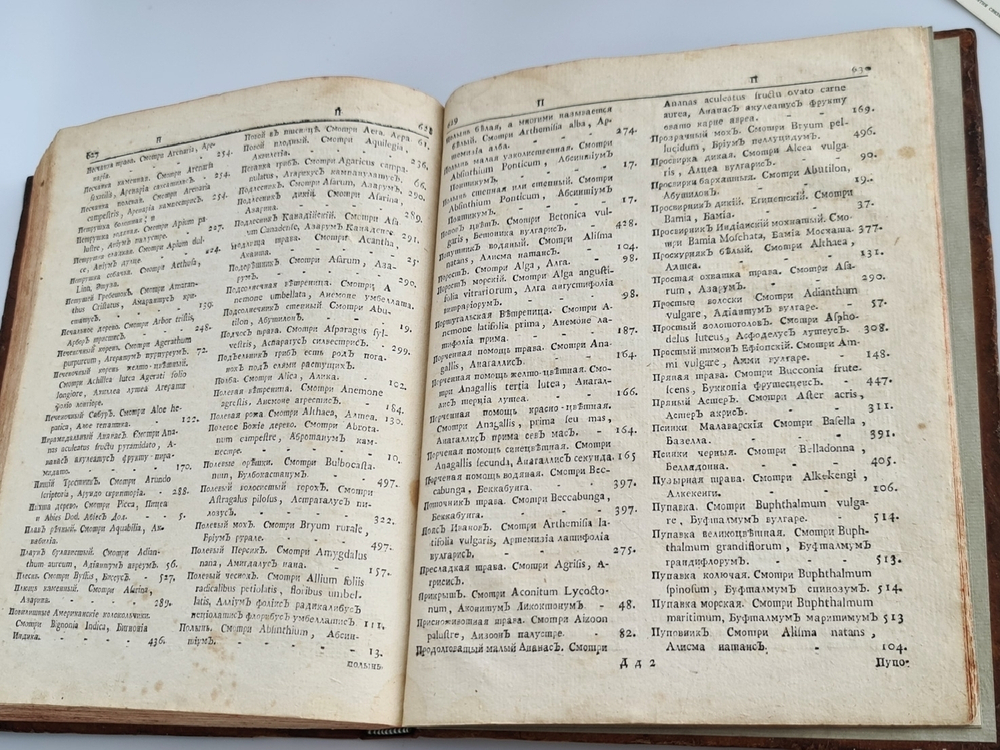 627
П
П
628
Печатка трава. Смотри Arenaria, Аре-
нариа. 254.
Печатка каменная. Смотри Arenaria
saxatilis, Аренариа саксатилисЪ. 254.
Печатка полевая. Смотри Arenaria
campestris, Аренариа кампестрисЪ. 254.
Петрушка болотная, и
Петрушка водяная. Смотри Apium pa-
lustre, АпїумЪ палустре. 227.
Петрушка сладкая. Смотри Apium dul-
ce, АпїумЪ дулце. 224.
Петрушка собачья. Смотри Aethusa,
Linn, Этуза.
Петушей ГребешокЪ. Смотри Amaran-
thus Cristatus, АмарантусЪ кри-
статусЪ. 139.
Печальное дерево. Смотри Arbor tristis,
АрборЪ тристисЪ. 248.
Печеночный корень. Смотри Ageratum
purpureum, АгератумЪ пурпуреумЪ. 72.
Печеночный корень желто-цвѣтный.
Смотри Achillea lutea Agerati folio
longiore, Ахиллеа лутеа Агерати
фолио лонгиоре.
Печеночный СабурЪ. Смотри Aloe he-
patica, Алое гепатика. 122.
Пирамидальный АнанасЪ. Смотри Ana-
nas aculeatus fructu pyramidato, А-
нанасЪ акулеатусЪ фрукту пира-
мидато. 170.
Пищїй ТрестникЪ. Смотри Arundo
scriptoria, Арундо скрипторїа. 288.
Пихта дерево. Смотри Picea, Пицеа
и Abies Dod. АбїесЪ Дод. 5.
ПлавЪ рѣчный. Смотри Aquabilia, Ак-
вабилїа.
ПлаунЪ булавистый. Смотри Adian-
thum aureum, АдїантумЪ ауреумЪ. 56.
Плесень. Смотри Byssus, БиссусЪ. 527.
Плющь каменный. Смотри Asarina,
Азарина. 289.
Повиляшные Американскїе колокольчики.
Смотри Bignonia Indica, Бигнонїа
Индика. 436.
Повой вЪ пшеницѣ. Смотри Aera. Аера. 61.
Повой плодный. Смотри Aquilegia,
Аквилегїа. 236.
Поганка грибЪ. Смотри Agaricus campa-
nulatus, АгарикусЪ кампанулатусЪ. 66.
ПодлесникЪ. Смотри Asarum, АзарумЪ. 290.
ПодлесникЪ дикїй. Смотри Asarina,
Азарина. 289.
ПодлесникЪ Канадїйскїй. Смотри Asa-
rum Canadense, АзарумЪ Канаденсе. 291.
Медведца трава. Смотри Acantha,
Аканта. 25.
ПодорѣшникЪ. Смотри Asarum, Аза-
румЪ. 290.
Подсолнечная вѣтреница. Смотри A-
nemone umbellata, Анемоне умбеллата.
Подсолнечникѣ Смотри Abu-
tilon, АбутилонЪ. 19.
ПодчосЪ трава. Смотри Asparagus syl-
vestris, АспарагусЪ силвестрисЪ. 299.
ПодъельникЪ грибЪ есть родЪ пога-
нокЪ подЪ елями растущихЪ.
Полба. Смотри Alica, Алика. 102.
Полевая вѣтреница. Смотри Anemone
agrestis, Анемоне агрестисЪ. 184.
Полевая рожа Смотри Althaea, Алтеа. 130.
Полевое Божїе дерево. Смотри Abrota-
num campestre, АбротанумЪ кам-
пестре. 10.
Полевые орѣшки. Смотри Bulbocasta-
num, БулбокастанумЪ. 497.
Полевый волосистый горохЪ. Смотри
Astragalus pilosus, АстрагалусЪ пи-
лозусЪ. 322.
Полевый мохЪ. Смотри Bryum rurale,
БрїумЪ рурале. 497.
Полевый ПерсикЪ. Смотри Amygdalus
nana, АмигдалусЪ нана. 157.
Полевый чеснокЪ. Смотри Allium foliis
radicalibus petiolatis, floribus umbel-
latis, АллїумЪ фолїисЪ радикалибусЪ
петїолатисЪ флорибусЪ умбеллатисЪ 111.
Полынь. Смотри Absinthium, Абсин-
тїумЪ. 13.
полынь
629
П
П
630
Полынь бѣлая, а многими называется
бѣлый. Смотри Arthemisia alba, Ар-
темизїа алба. 274.
Полынь малая узколиственная. Смотри
Absinthium Ponticum, АбсинтїумЪ
ПонтикумЪ. 17.
Полынь степная или степный. Смотри
Absinthium Ponticum, АбсинтїумЪ
ПонтикумЪ. 17.
ПоповЪ цвѣтЪ. Смотри Betonica vul-
garis, Бетоника вулгарисЪ. 428.
ПопутникЪ водяный. Смотри Alisma
natans, Алисма натансЪ. 104.
ПоростЪ. Смотри Alga, Алга. 98.
ПоростЪ морскїй. Смотри Alga angusti-
folia vitrariorum, Алга ангустифолїа
витрарїорумЪ. 98.
Португальская Вѣтреница. Смотри A-
nemone latifolia prima, Анемоне ла-
тифолїа прима. 187.
Порченная помощь трава. Смотри Ana-
gallis, АнагаллисЪ. 164.
Порченная помощь желто-цвѣтная. Смо-
три Anagallis tertia lutea, Анагал-
лисЪ терцїа лутеа. 166.
Порченая помощь красно-цвѣтная.
Смотри Anagallis, prima seu mas,
АнагаллисЪ прима севЪ масЪ. 164.
Порченая помощь синецвѣтная. Смотри
Anagallis secunda, АнагаллисЪ секунда. 165
Порченая помощь водяная. Смотри Bec-
cabunga, Беккабунга. 397.
ПоточникЪ трава. Смотри Beccabunga,
Беккабунга. 397.
ПоясЪ ИвановЪ. Смотри Arthemisia la-
tifolia vulgaris, Артемизїа латифолїа
вулгарисЪ. 275.
Пресладкая трава. Смотри Agrisis, А-
грисисЪ.
ПрикрытЪ. Смотри Aconitum Lycocto-
num, АконитумЪ ЛикоктонумЪ. 48.
Присноживотная трава. Смотри Aizoon
palustre, АизоонЪ палустре. 82.
Продолговатый малый АнанасЪ. Смотри
Ananas aculeatus fructu ovato carne
aurea, АнанасЪ акулеатусЪ фрукту
овато карне авреа. 169.
Прозрачный мохЪ. Смотри Bryum pel-
lucidum, БрїумЪ пеллуцидумЪ. 496.
Просвирка дикая. Смотри Alcea vulga-
ris, Алцеа вулгарисЪ. 90.
Просвирка бархатная. Смотри Abutilon,
АбутилонЪ. 19.
ПросвирникЪ дикїй. Египетскїй. Смотри
Bamia, Бамїа. 37.
ПросвирникЪ Индїанскїй мохнатый. Смо-
три Bamia Moschata, Бамїа Мосхата. 377.
ПроскурнякЪ бѣлый. Смотри Althaea,
Алтеа. 131.
Простая охватка трава. Смотри Asa-
rum, АзарумЪ. 290.
Простые волоски Смотри Adianthum
vulgare, АдїантумЪ вулгаре. 57.
Простый волотоголовЪ. Смотри Aspho-
delus luteus, АсфоделусЪ лутеусЪ. 308.
Простый тимонЪ Ефїопскїй. Смотри Am-
mi vulgare, Амми вулгаре. 148.
Пряная трава. Смотри Bucconia frute-
scens, Букконїа фрутесценсЪ. 447.
Пряный АстерЪ. Смотри Aster acris,
АстерЪ акрисЪ. 311.
Псинки Малаварскїя Смотри Basella,
Базелла. 391.
Псинки черныя. Смотри Belladonna,
Белладонна. 405.
Пузырная трава. Смотри Alkekengi,
Алкекенги. 106.
Пупавка. Смотри Buphthalmum vulga-
re, БуфталмумЪ вулгаре. 514.
Пупавка великоцвѣтная. Смотри Buph-
thalmum grandiflorum, БуфталмумЪ
грандифлорумЪ. 513.
Пупавка колючая. Смотри Buphthalmum
spinosum, БуфталмумЪ спинозумЪ. 514.
Пупавка морская. Смотри Buphthalmum
maritimum, БуфталмумЪ маритимумЪ 513
ПуповникЪ. Смотри Alisma natans,
Алисма натансЪ. 104.
Д д 2
Пупо-